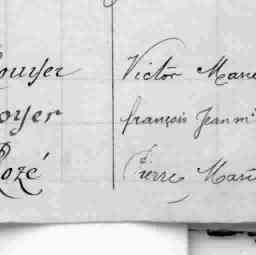 ouyer Victor Marie
oyer françois Jean m
Rozé Pierre Marie